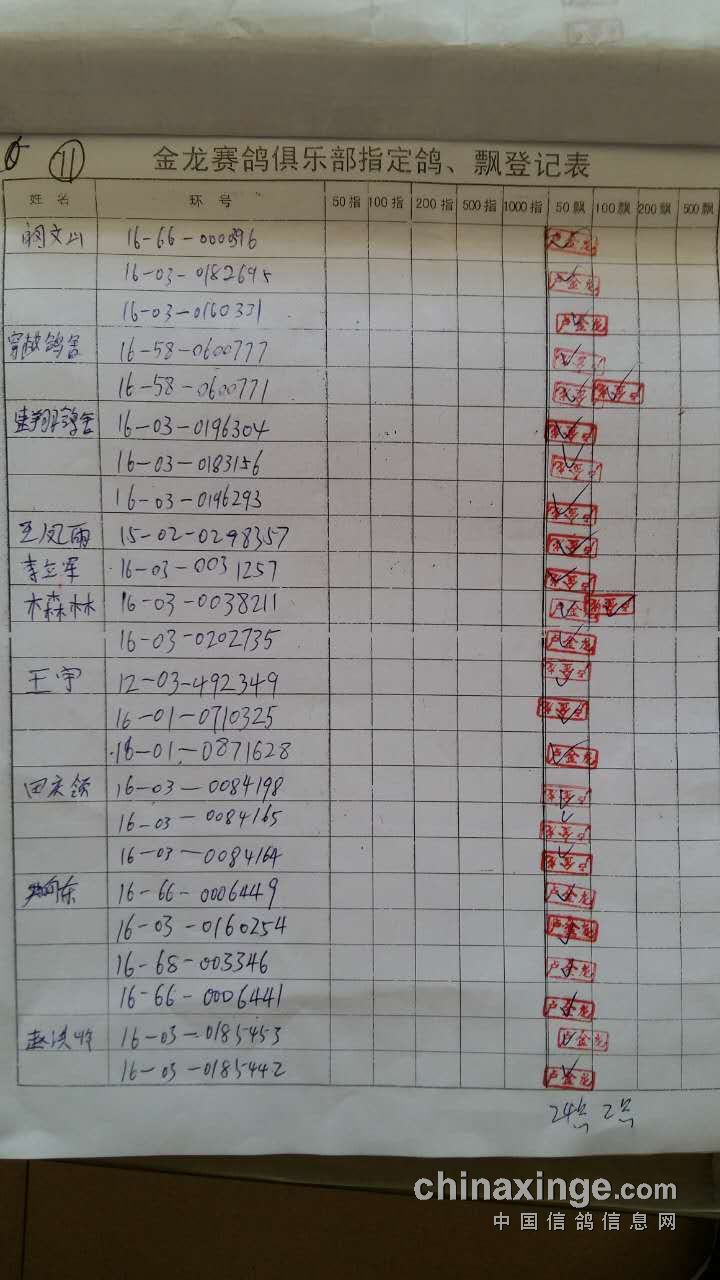 11
金龙赛鸽俱乐部指定鸽、飘登记表
姓名 环号 50指 100指 200指 500指 1000指 50飘 100飘 200飘 500飘
文山 16-66-000396 卢金龙
16-03-0182695 卢金龙
16-03-0160331 卢金龙
穿越鸽舍 16-58-0600777 卢金龙
16-58-0600771 卢金龙 卢金龙
速翔鸽舍 16-03-0196304 卢金龙
16-03-0183156 卢金龙
16-03-0196293 卢金龙
王凤雨 15-02-0298357 卢金龙
李立军 16-03-0031257 卢金龙
木森林 16-03-0038211 卢金龙 卢金龙
16-03-0202735 卢金龙
王宇 12-03-492349 卢金龙
16-01-0710325 卢金龙
16-01-0871628 卢金龙
田庆领 16-03-0084198 卢金龙
16-03-0084165 卢金龙
16-03-0084164 卢金龙
东 16-66-0006449 卢金龙
16-03-0160254 卢金龙
16-68-003346 卢金龙
16-66-0006441 卢金龙
赵洪 16-03-0185453 卢金龙
16-03-0185442 卢金龙
24 2
chinaxinge.com
中国信鸽信息网